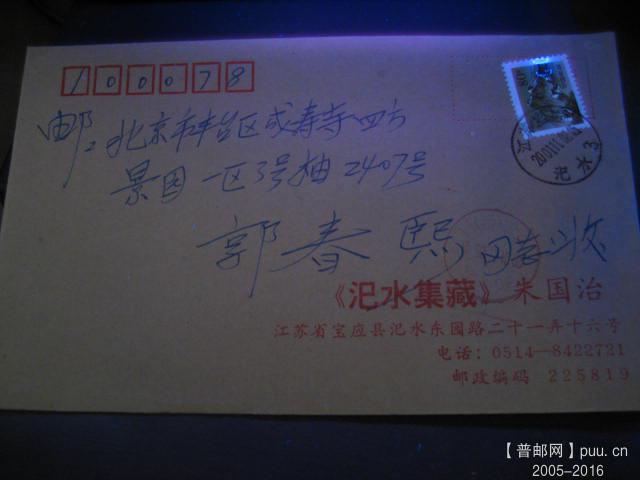 100078
邮:北京市丰台区成寿寺四方
景园一区3号抽2407号
郭春熙 同志收
《汜水集藏》朱国治
江苏省宝应县汜水东园路二十一弄十六号
电话:0514—8422721
邮政编码 225819
【普邮网】puu.cn
2005-2016